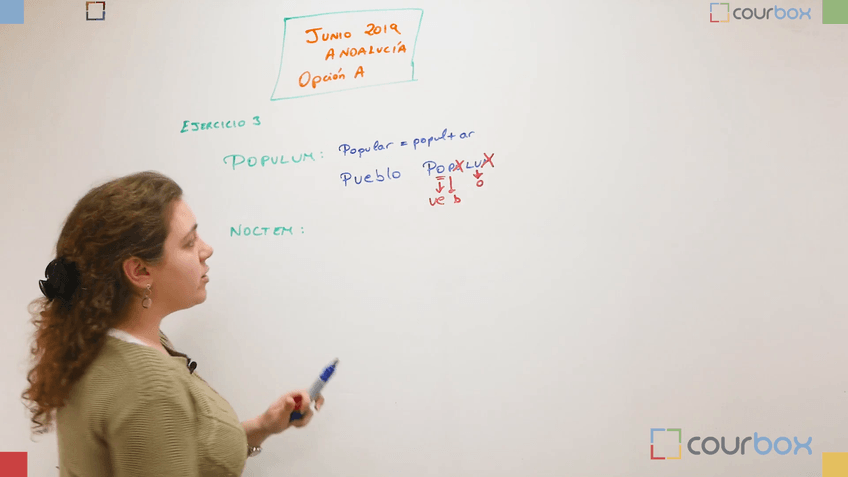 courbox
JUNIO 2019
ANDALUCÍA
Opción A
EJERCICIO 3
POPULUM: Popular = popul + ar
Pueblo POPULUM
ue b o
NOCTEM:
courbox